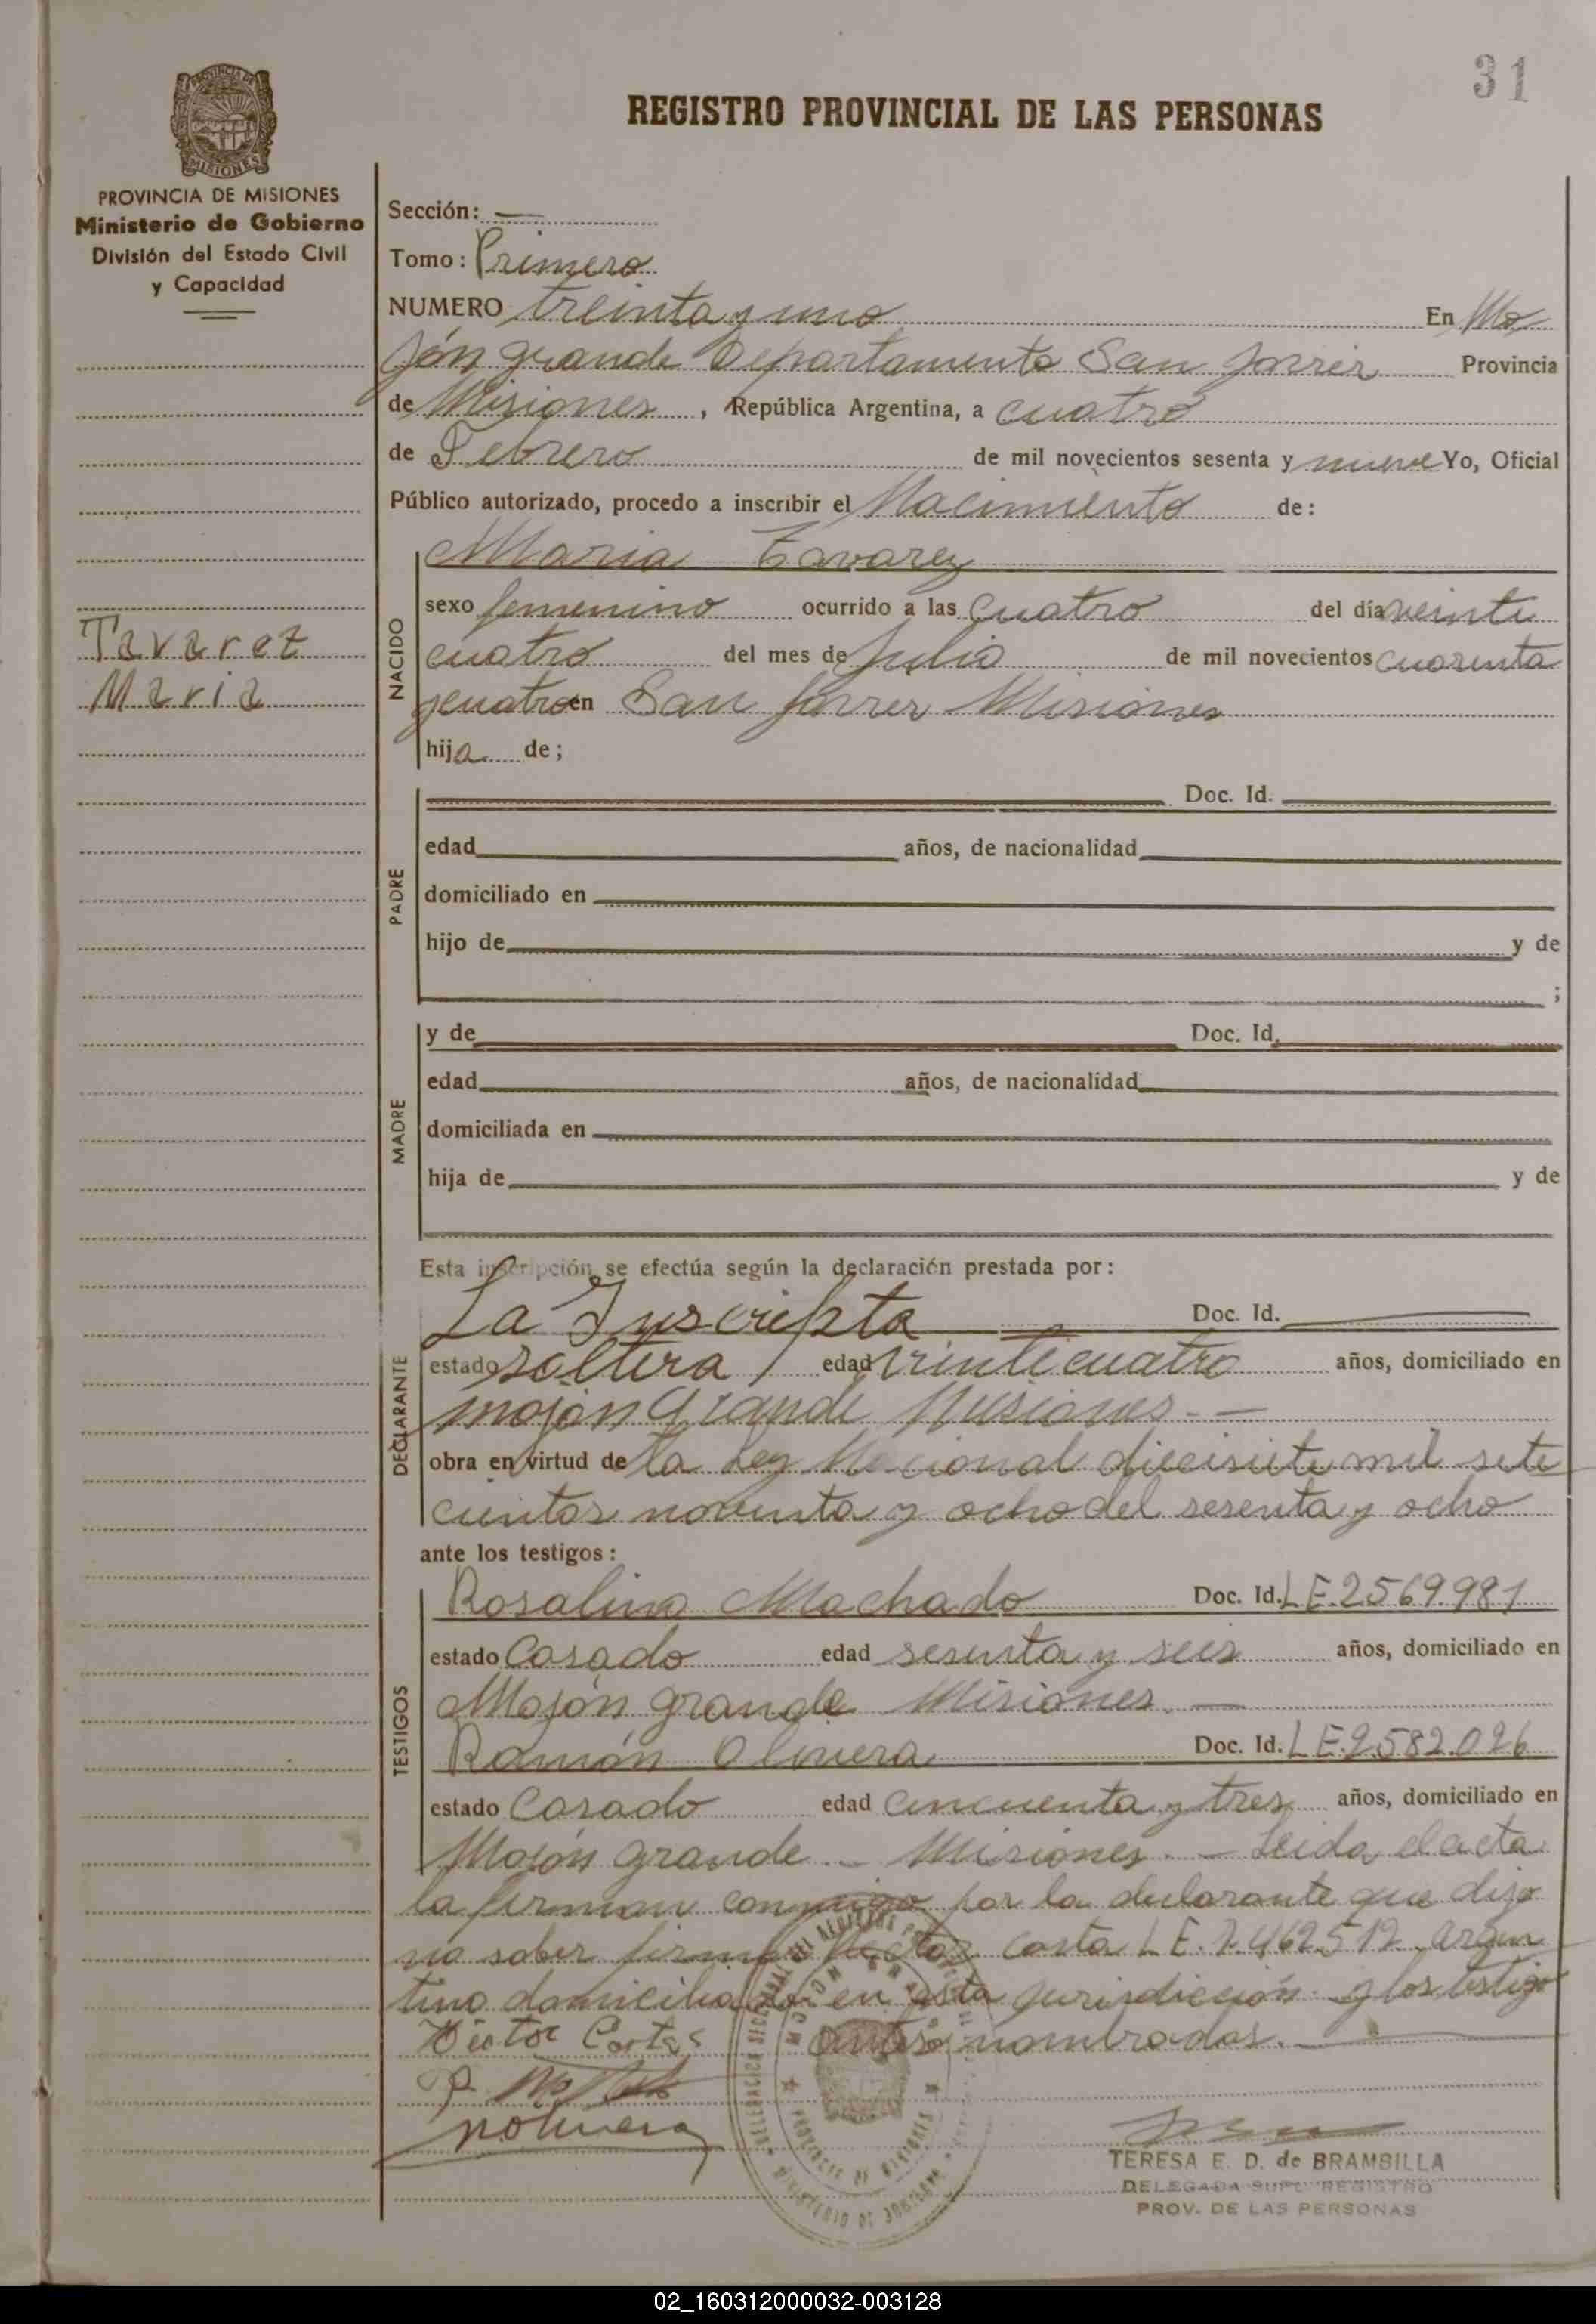 31
REGISTRO PROVINCIAL DE LAS PERSONAS
PROVINCIA DE MISIONES
Ministerio de Gobierno
División del Estado Civil
y Capacidad
Tavarez
Maria
Sección: —
Tomo: Primero
NUMERO treinta y uno En Mo
jón grande Departamento San Javier Provincia
de Misiones, República Argentina, a cuatro
de Febrero de mil novecientos sesenta y nueve Yo, Oficial
Público autorizado, procedo a inscribir el Nacimiento de:
NACIDO
Maria Tavarez
sexo femenino ocurrido a las cuatro del día veinti
cuatro del mes de Julio de mil novecientos cuarenta
y cuatro en San Javier Misiones
hija de;
PADRE
Doc. Id.
edad años, de nacionalidad
domiciliado en
hijo de y de
;
MADRE
y de Doc. Id.
edad años, de nacionalidad
domiciliada en
hija de y de
Esta inscripción se efectúa según la declaración prestada por:
DECLARANTE
La Inscripta Doc. Id.
estado soltera edad veinticuatro años, domiciliado en
mojón Grande Misiones.-
obra en virtud de la Ley Nacional diecisiete mil sete
cientos noventa y ocho del sesenta y ocho
ante los testigos:
TESTIGOS
Rosalino Machado Doc. Id. LE.2569.981
estado Casado edad sesenta y seis años, domiciliado en
Mojón grande Misiones. —
Ramón Olivera Doc. Id. LE.2.582.026
estado Casado edad cincuenta y tres años, domiciliado en
Mojón grande - Misiones. - Leida el acta
la firman conmigo por la declarante que dijo
no saber firmar Hector Costa L E. 7.462.512 Argen
tino domiciliado en esta jurisdicción y los testigo
antes nombrados. —
TERESA E. D. de BRAMBILLA
DELEGADA SUPL REGISTRO
PROV. DE LAS PERSONAS
02_160312000032-003128